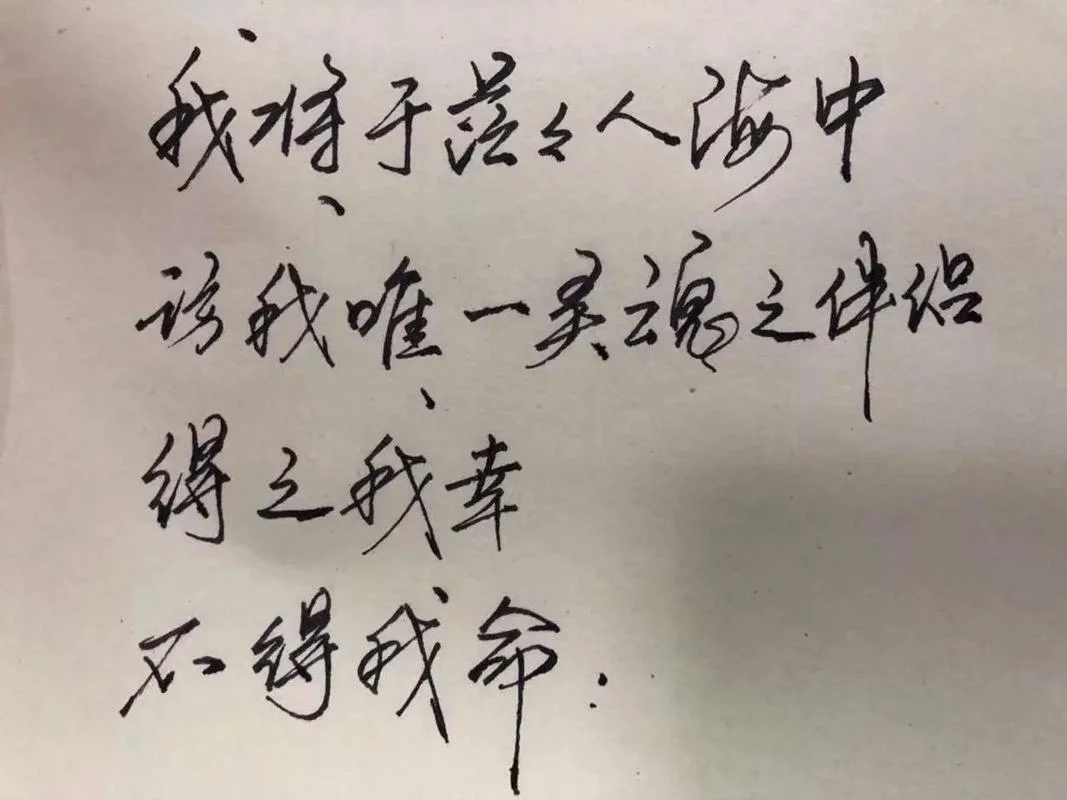 我将于茫々人海中
访我唯一灵魂之伴侣
得之我幸
不得我命.